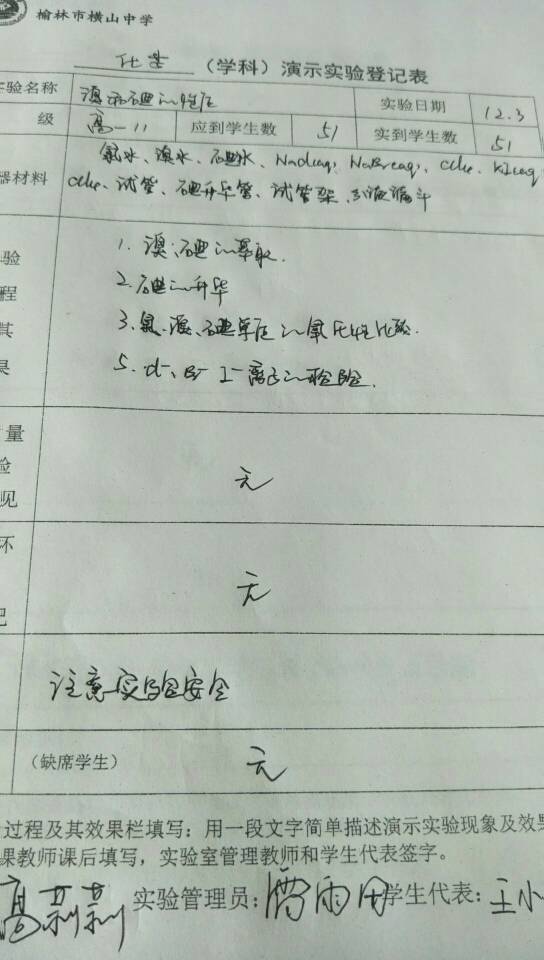 榆林市横山中学
化学 (学科) 演示实验登记表
实验名称 溴和碘的性质 实验日期 12.3
级 高一11 应到学生数 51 实到学生数 51
氯水、溴水、碘水、NaCl(aq)、NaBr(aq)、CCl4、KI(aq)
器材料 CCl4、试管、碘升华管、试管架、分液漏斗
1. 溴、碘的萃取.
验 2. 碘的升华
程
其 3. 氯、溴、碘单质的氧化性比较.
果 5. Cl- Br- I- 离子的检验.
量
验 无
见
坏 无
记
注意实验安全
(缺席学生) 无
过程及其效果栏填写：用一段文字简单描述演示实验现象及效果
课教师课后填写，实验室管理教师和学生代表签字。
高莉莉 实验管理员： 雨田 学生代表： 王小